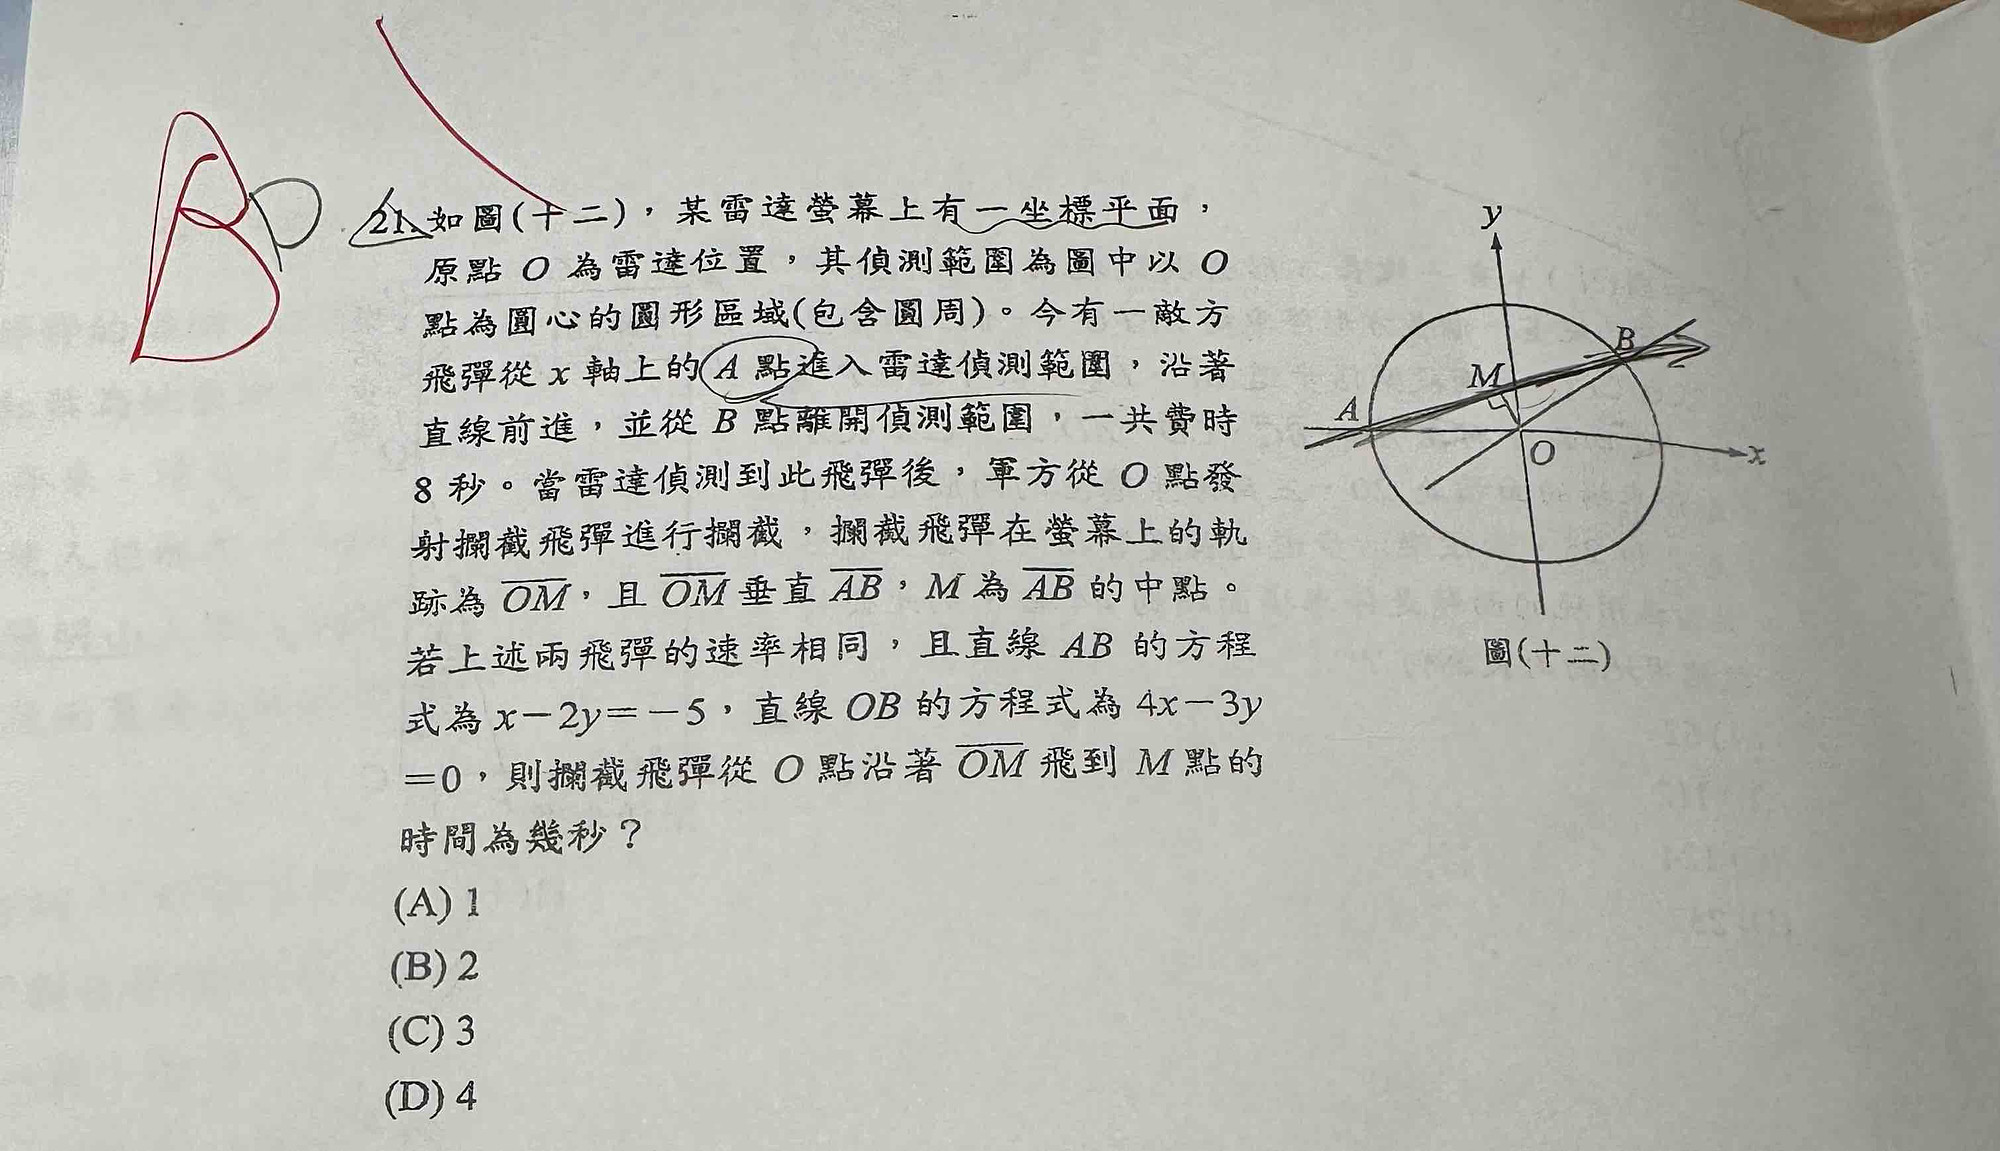 B
21.如圖(十二)，某雷達螢幕上有一坐標平面，
原點 O 為雷達位置，其偵測範圍為圖中以 O
點為圓心的圓形區域(包含圓周)。今有一敵方
飛彈從 x 軸上的 A 點進入雷達偵測範圍，沿著
直線前進，並從 B 點離開偵測範圍，一共費時
8 秒。當雷達偵測到此飛彈後，軍方從 O 點發
射攔截飛彈進行攔截，攔截飛彈在螢幕上的軌
跡為 OM，且 OM 垂直 AB，M 為 AB 的中點。
若上述兩飛彈的速率相同，且直線 AB 的方程
式為 x－2y＝－5，直線 OB 的方程式為 4x－3y
＝0，則攔截飛彈從 O 點沿著 OM 飛到 M 點的
時間為幾秒？
(A) 1
(B) 2
(C) 3
(D) 4
y
B
M
A
O
x
圖(十二)